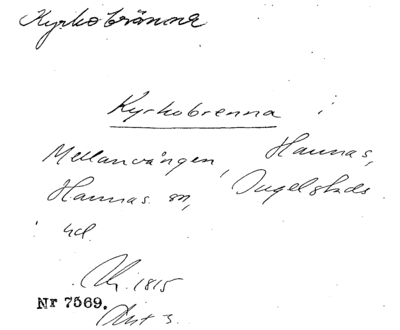 Kyrkobränna
Kyrkobrenna i
Mellanvången, Hannas,
Hannas sn, Ingelstads
hd.
1815
Nr 7569.
3.